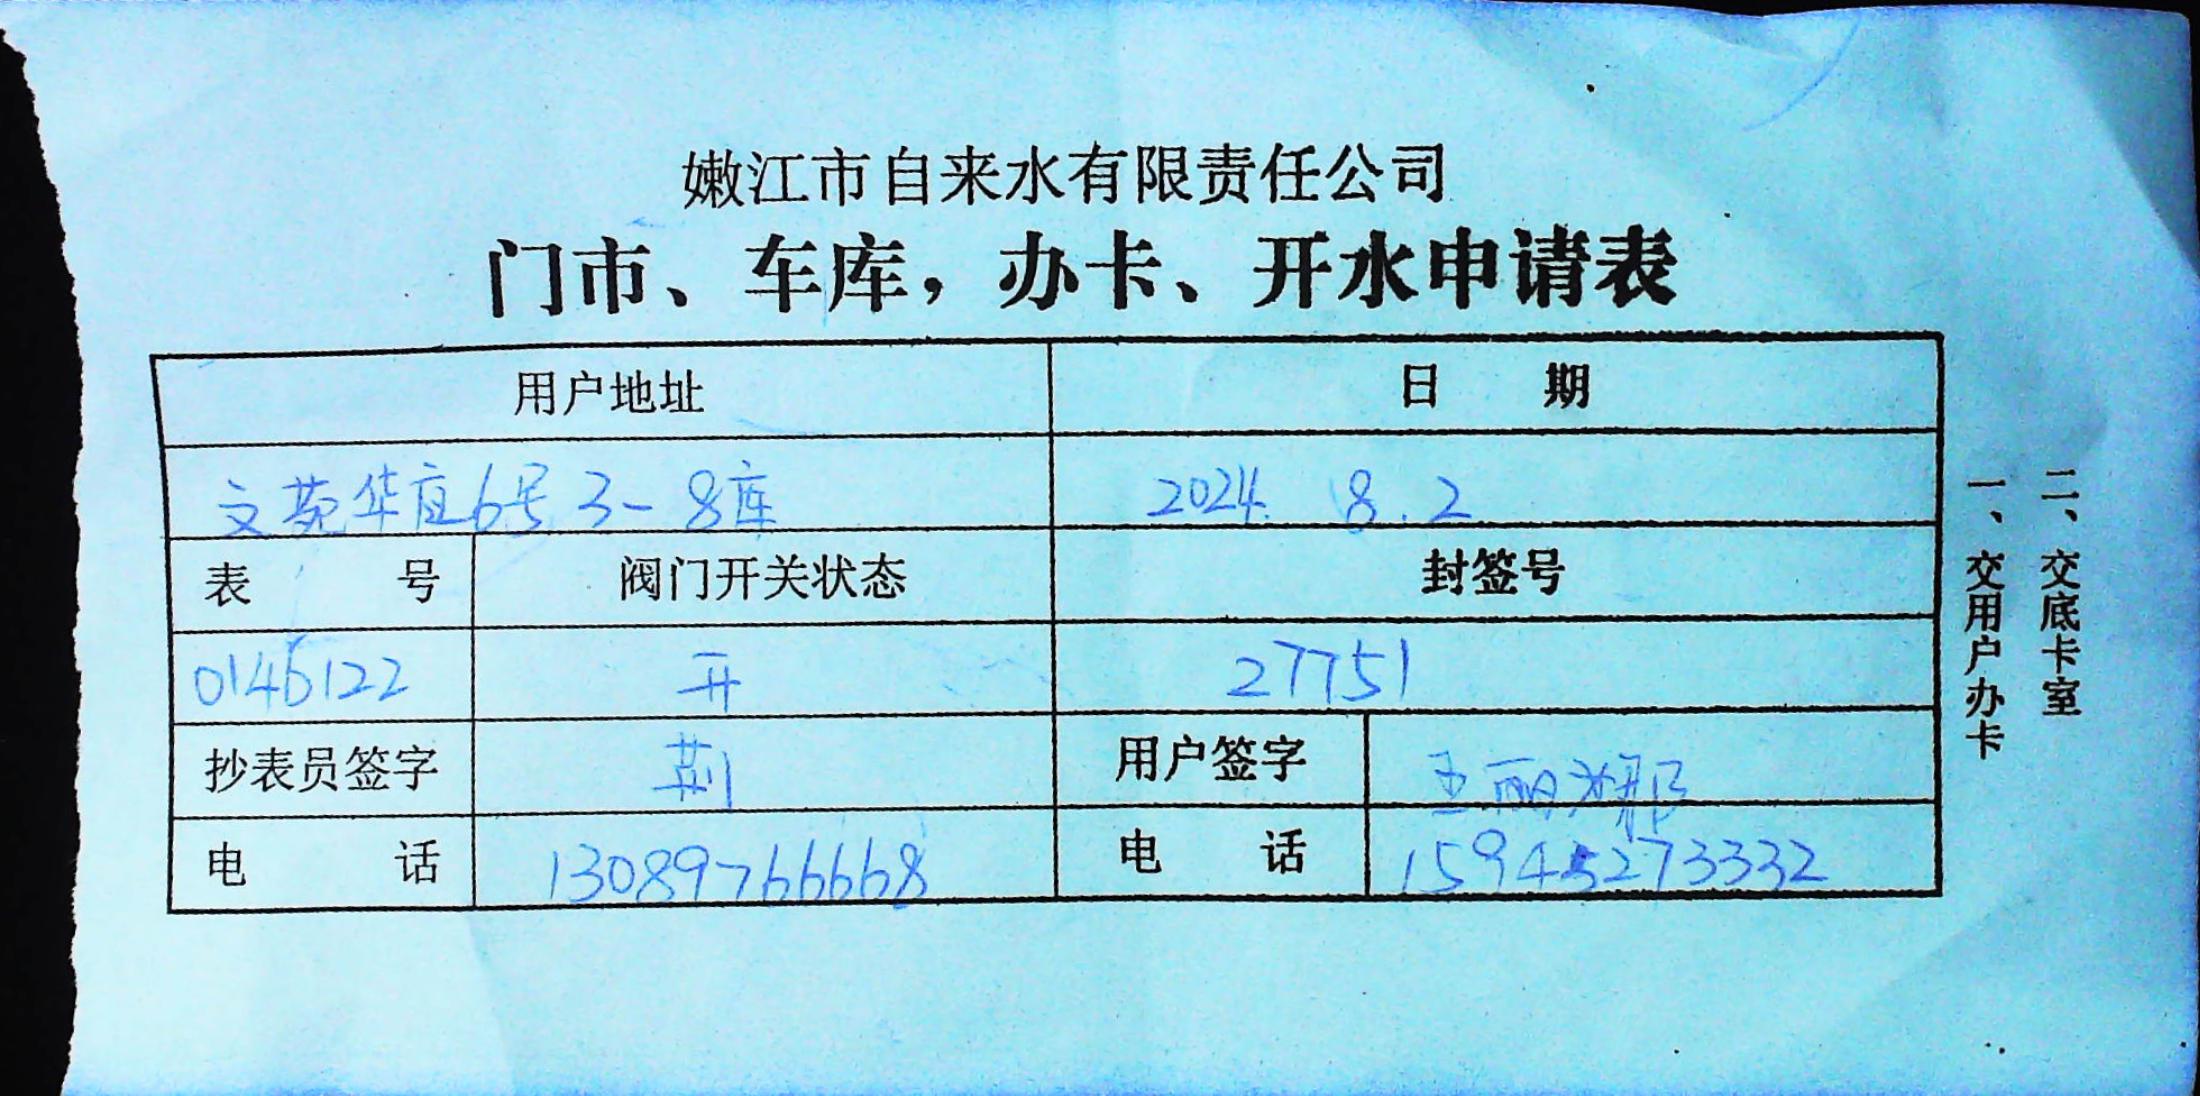 嫩江市自来水有限责任公司
门市、车库，办卡、开水申请表
用户地址 日 期
文苑华庭6号3-8库 2024.8.2
表 号 阀门开关状态 封签号
0146122 开 27751
抄表员签字 荆 用户签字 王丽娜
电 话 13089766668 电 话 15945273332
一、交用户办卡
二、交底卡室